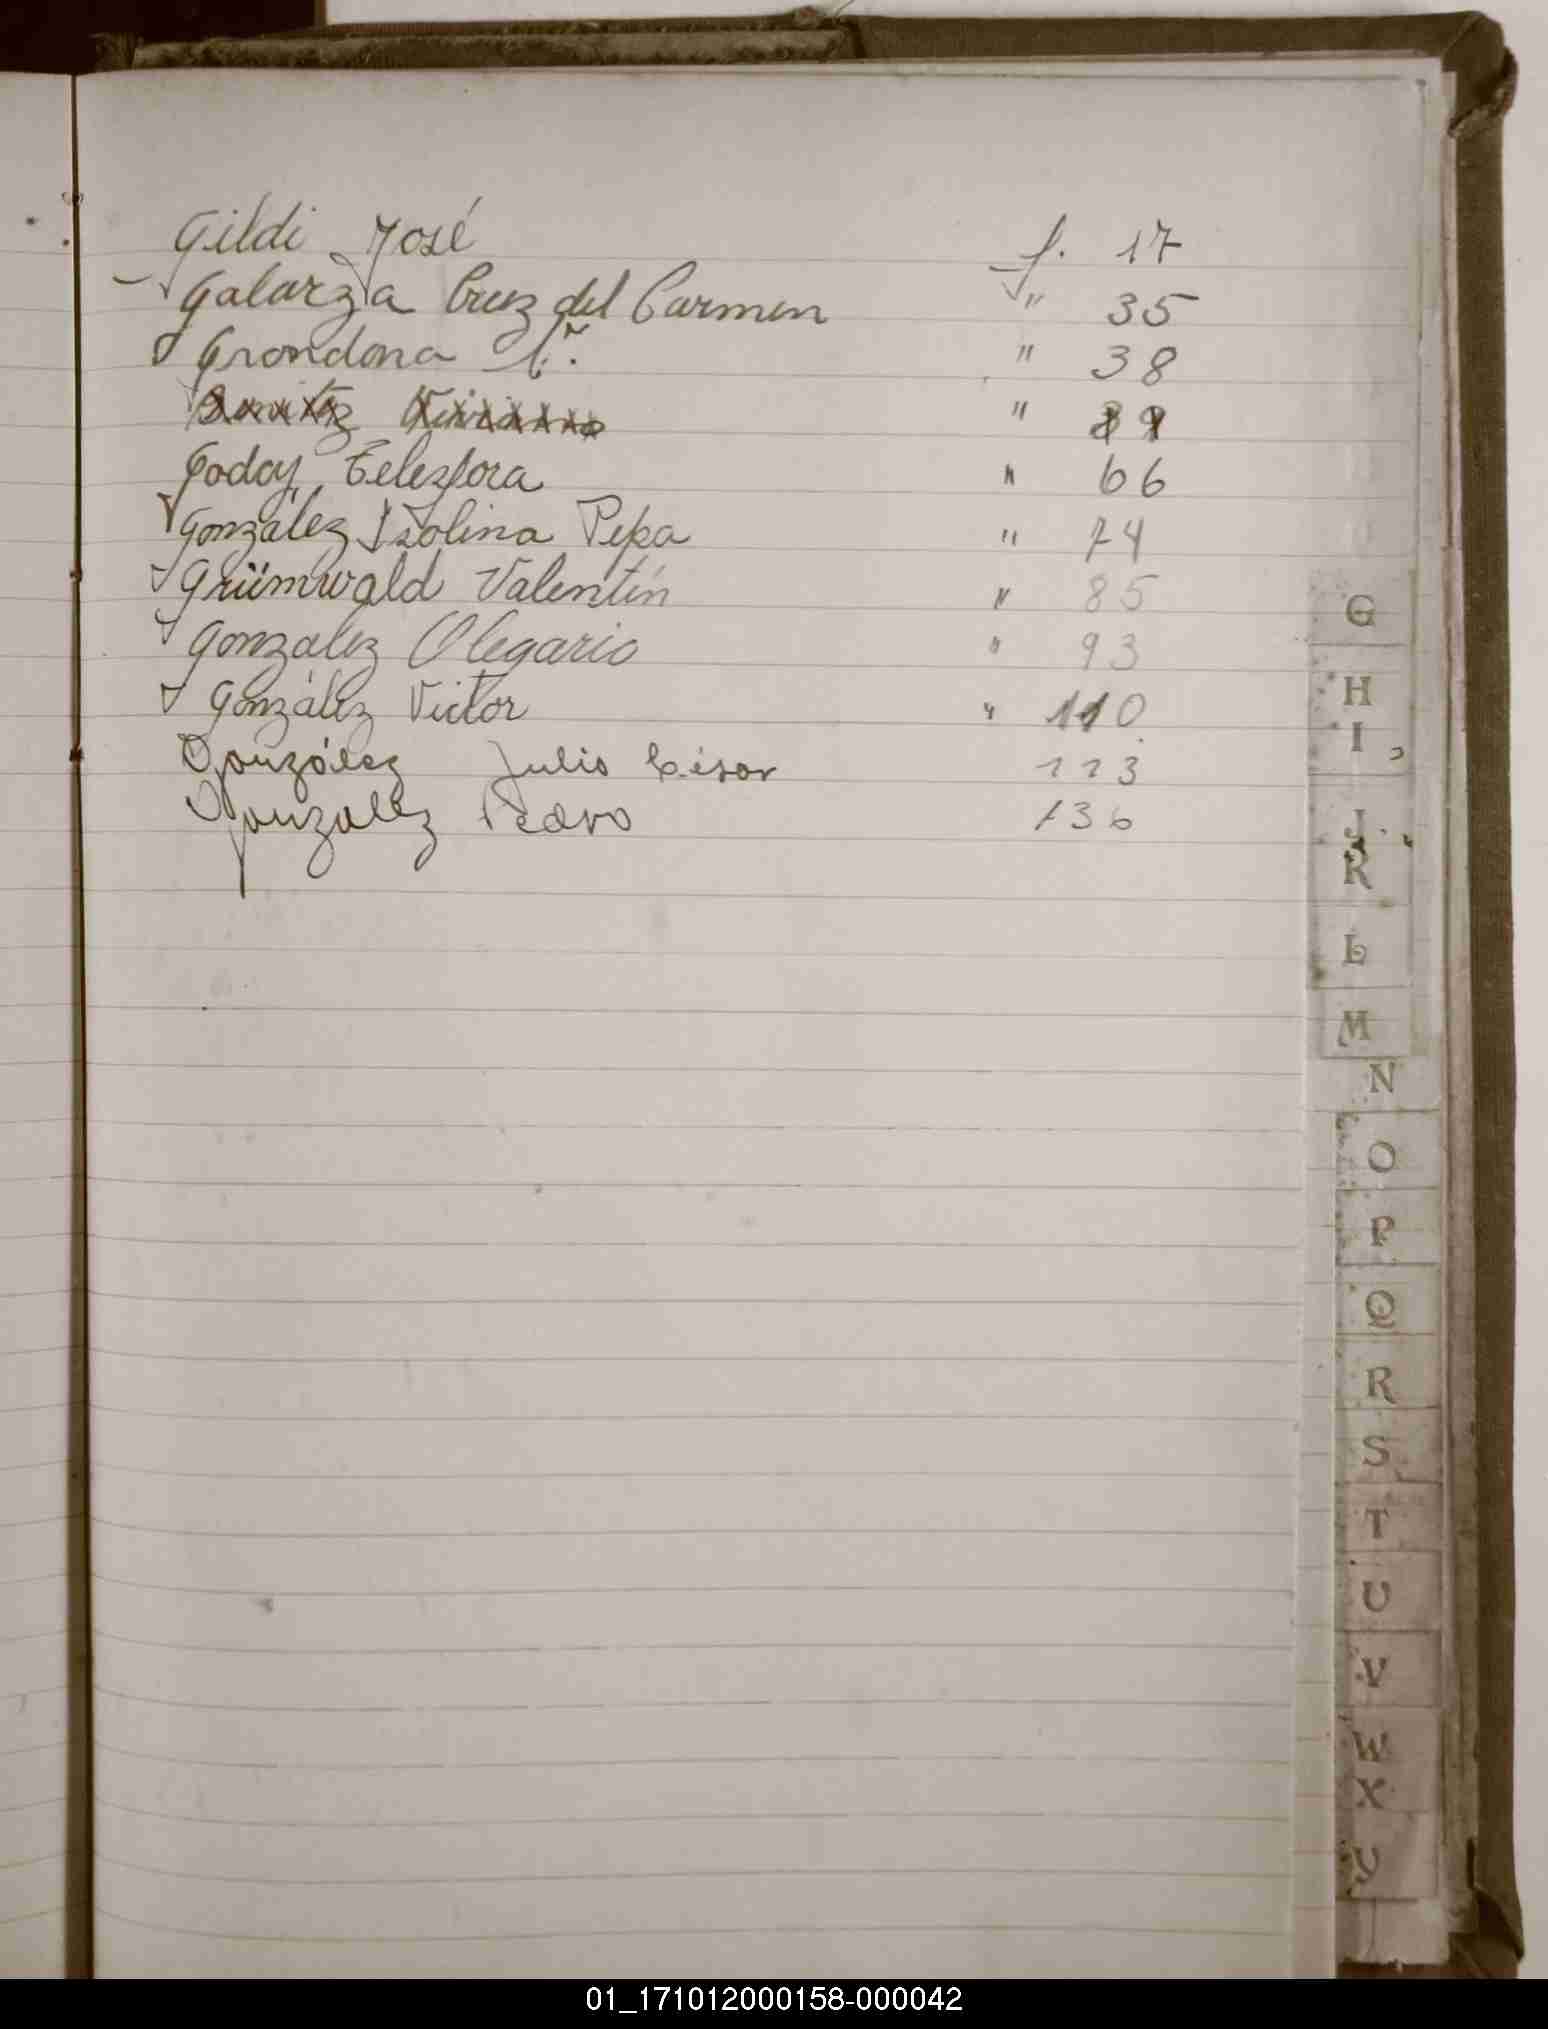 Gildi José f. 17
Galarza Cruz del Carmen " 35
Grondona C. " 38
Benitez " 39
Godoy Telesfora " 66
González Isolina Pepa " 74
Grümwald Valentín " 85
Gonzalez Olegario " 93
González Victor " 110
González Julio César 113
Gonzalez Pedro 136
G
H
I
J
K
L
M
N
O
P
Q
R
S
T
U
V
W
X
Y
01_171012000158-000042